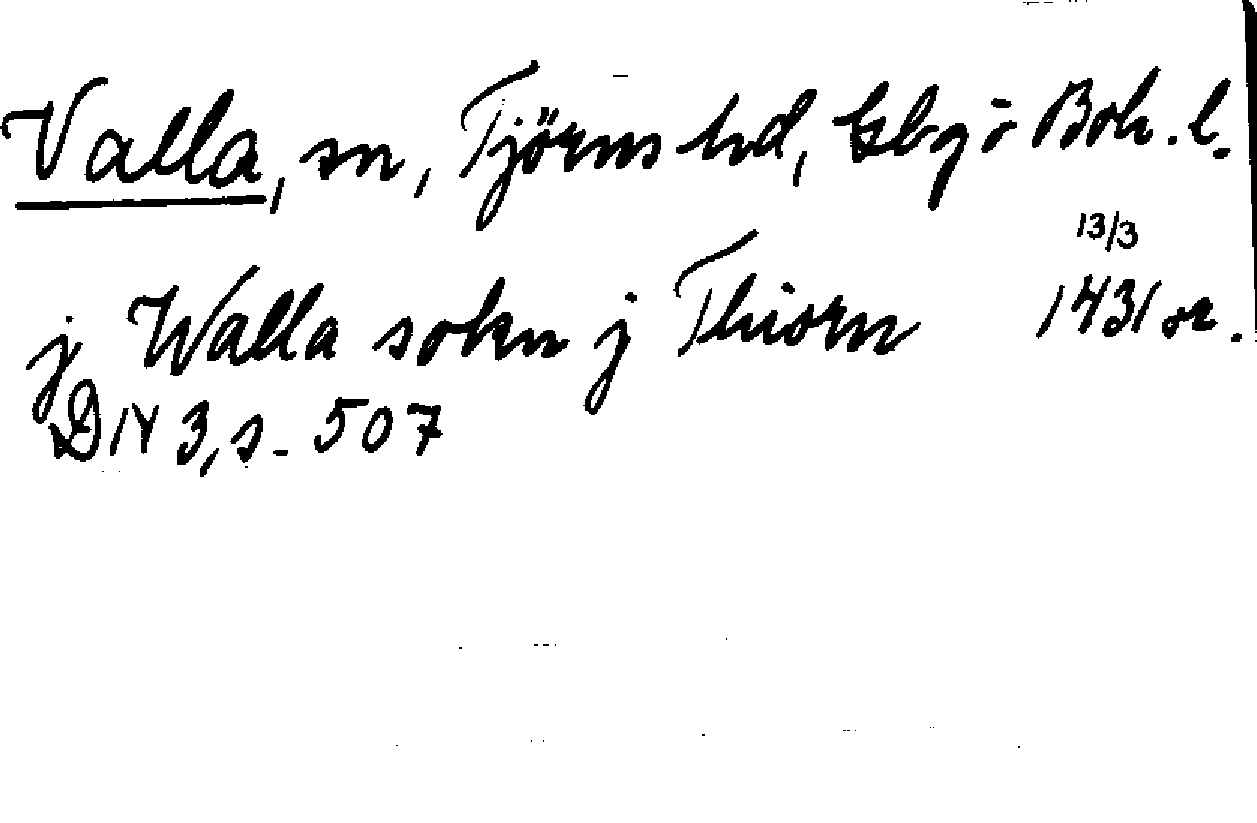 Valla, sn, Tjörns hd, Gbg o Boh. l.
13/3
j Walla sokn j Thiorn 1431 or.
DN 3, s. 507